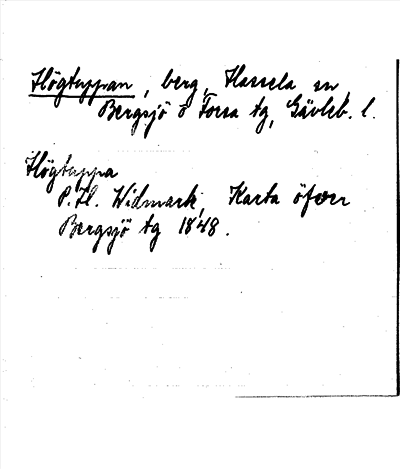 Högtuppan, berg, Hassela sn
Bergsjö o Forsa tg, Gävleb. l.
Högtuppa
P. H. Widmark, Karta öfver
Bergsjö tg 1848.